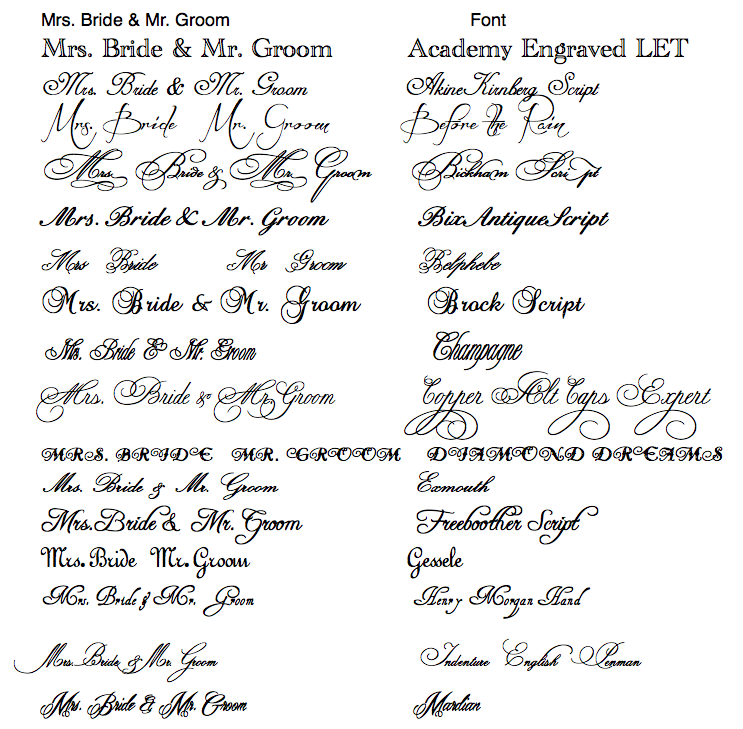 Mrs. Bride & Mr. Groom Font
Mrs. Bride & Mr. Groom Academy Engraved LET
Mrs. Bride & Mr. Groom AkineKirnberg Script
Mrs. Bride Mr. Groom Before the Rain
Mrs. Bride & Mr. Groom Bickham Script
Mrs. Bride & Mr. Groom BixAntiqueScript
Mrs Bride Mr Groom Belphebe
Mrs. Bride & Mr. Groom Brock Script
Mrs. Bride & Mr. Groom Champagne
Mrs. Bride & Mr. Groom Copper Alt Caps Expert
MRS. BRIDE MR. GROOM DIAMOND DREAMS
Mrs. Bride & Mr. Groom Exmouth
Mrs. Bride & Mr. Groom Freeboother Script
Mrs. Bride Mr. Groom Gessele
Mrs. Bride & Mr. Groom Henry Morgan Hand
Mrs. Bride & Mr. Groom Indenture English Penman
Mrs. Bride & Mr. Groom Mardian